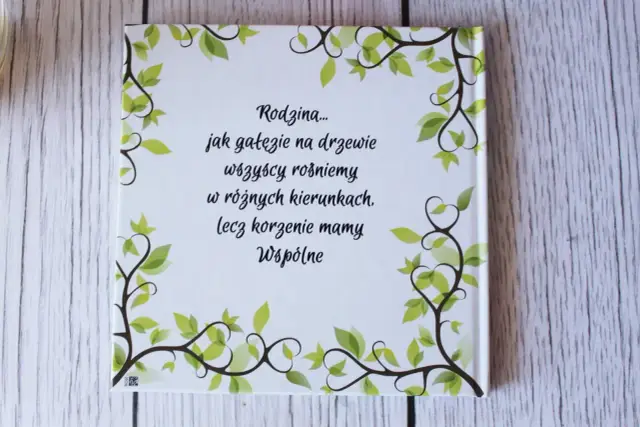 Rodzina...
jak gałęzie na drzewie
wszyscy rośniemy
w różnych kierunkach,
lecz korzenie mamy
Wspólne